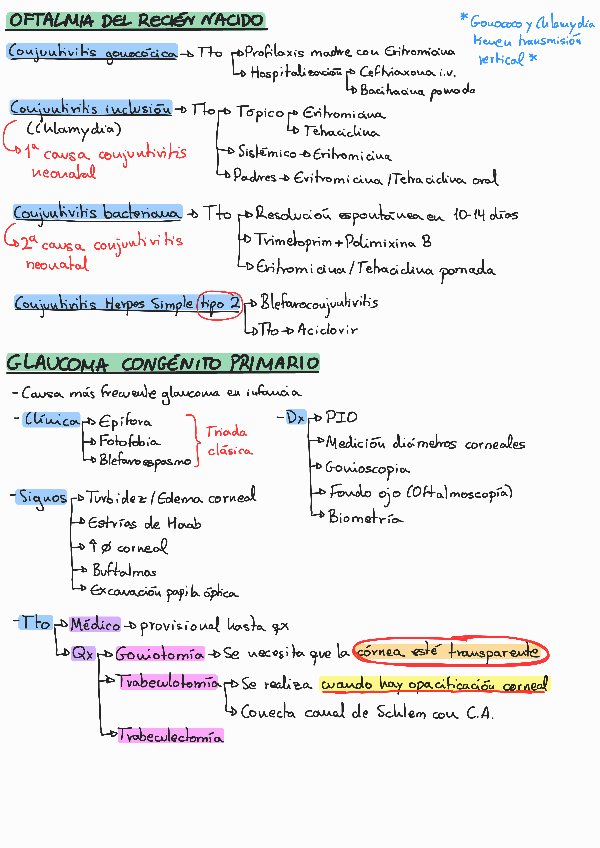 OFTALMIA DEL RECIÉN NACIDO
*Gonococo y Chlamydia
tienen transmisión
vertical*
Conjuntivitis gonocócica → Tto → Profilaxis madre con Eritromicina
→ Hospitalización → Ceftriaxona i.v.
→ Bacitracina pomada
Conjuntivitis inclusión → Tto → Tópico → Eritromicina
(Chlamydia) → Tetraciclina
→ 1ª causa conjuntivitis
neonatal
→ Sistémico → Eritromicina
→ Padres → Eritromicina/Tetraciclina oral
Conjuntivitis bacteriana → Tto → Resolución espontánea en 10-14 días
→ 2ª causa conjuntivitis
neonatal
→ Trimetoprim + Polimixina B
→ Eritromicina/Tetraciclina pomada
Conjuntivitis Herpes Simple tipo 2 → Blefaroconjuntivitis
→ Tto → Aciclovir
GLAUCOMA CONGÉNITO PRIMARIO
- Causa más frecuente glaucoma en infancia
- Clínica → Epífora
→ Fotofobia
→ Blefaroespasmo
Triada
clásica
- Dx → PIO
→ Medición diámetros corneales
→ Gonioscopia
→ Fondo ojo (Oftalmoscopía)
→ Biometría
- Signos → Turbidez/Edema corneal
→ Estrías de Haab
→ ↑ Ø corneal
→ Buftalmos
→ Excavación papila óptica
- Tto → Médico → provisional hasta qx
→ Qx → Goniotomía → Se necesita que la córnea esté transparente
→ Trabeculotomía → Se realiza cuando hay opacificación corneal
→ Conecta canal de Schlem con C.A.
→ Trabeculectomía